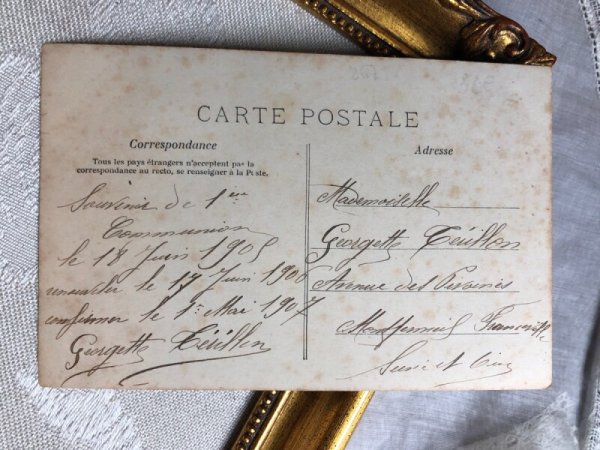 CARTE POSTALE
Correspondance
Tous les pays étrangers n'acceptent pas la
correspondance au recto, se renseigner à la Poste.
Souvenir de 1ère
Communion
le 18 Juin 1905
renouveler le 17 Juin 1906
confirmer le 1er Mai 1907
Georgette
Adresse
Mademoiselle
Georgette
Avenue des
Montfermeil Franceville
Seine et Oise